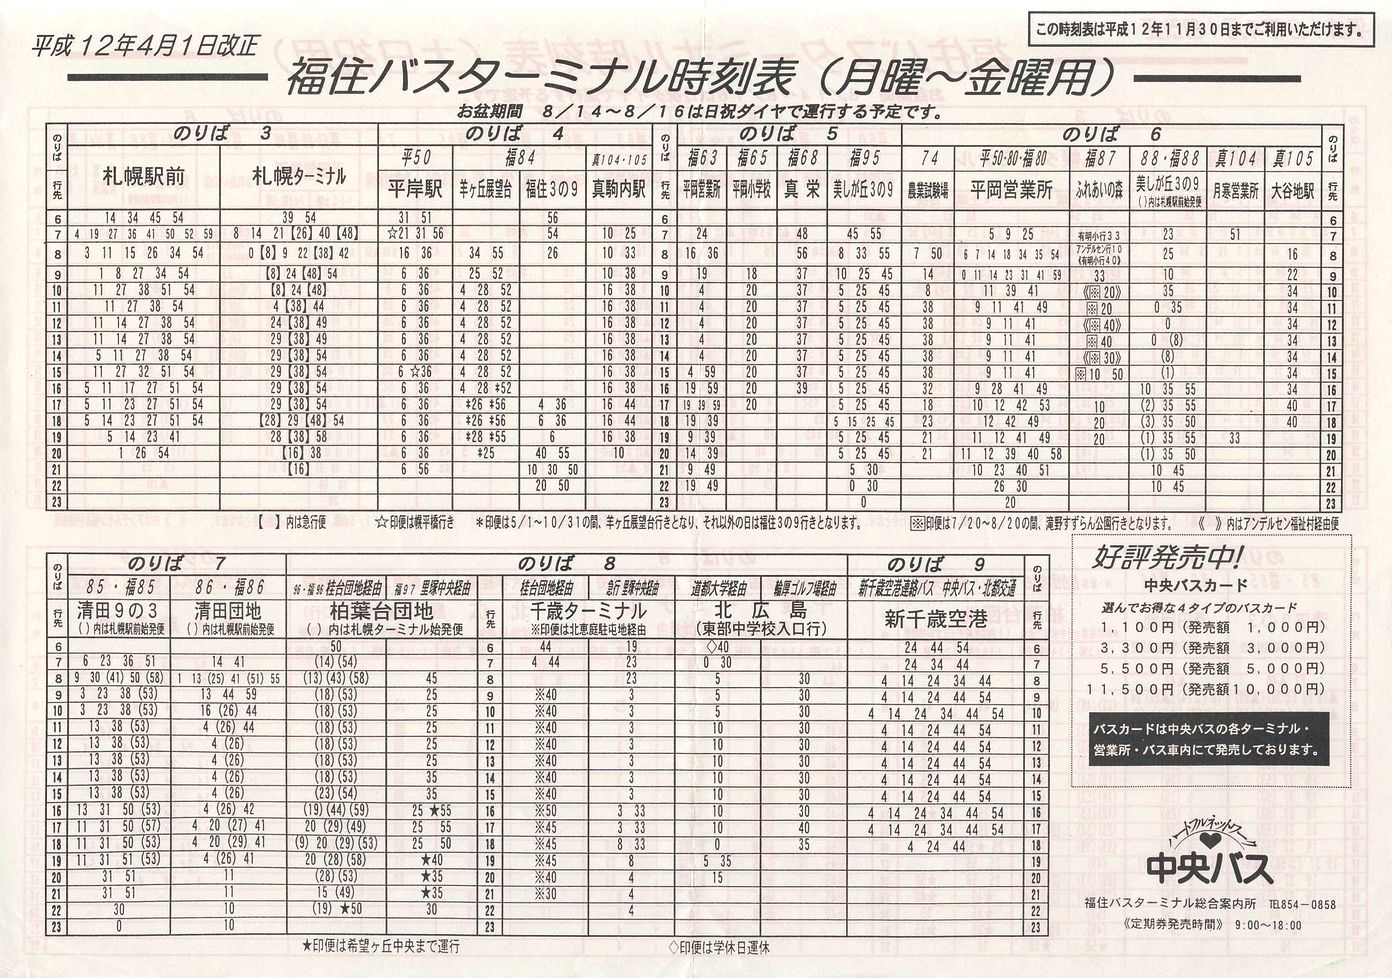 平成12年4月1日改正
この時刻表は平成12年11月30日までご利用いただけます。
福住バスターミナル時刻表（月曜～金曜用）
お盆期間　8／14～8／16は日祝ダイヤで運行する予定です。
のりば のりば 3 のりば 4 のりば のりば 5 のりば 6 のりば
平50 福84 真104・105 福63 福65 福68 福95 74 平50・80・福80 福87 88・福88 真104 真105
行先 札幌駅前 札幌ターミナル 平岸駅 羊ヶ丘展望台 福住3の9 真駒内駅 行先 平岡営業所 平岡小学校 真栄 美しが丘3の9 農業試験場 平岡営業所 ふれあいの森 美しが丘3の9 月寒営業所 大谷地駅 行先
( )内は札幌駅前始発便
6 14 34 45 54 39 54 31 51 56 6 6
7 4 19 27 36 41 50 52 59 8 14 21【26】40【48】 ☆21 31 56 54 10 25 7 24 48 45 55 5 9 25 有明小行33 23 51 7
8 3 11 15 26 34 54 0【8】9 22【38】42 16 36 34 55 26 10 33 8 16 36 56 8 33 55 7 50 6 7 14 18 34 35 54 アンデルセン行10 《有明小行40》 25 16 8
9 1 8 27 34 54 【8】24【48】54 6 36 25 52 10 38 9 19 18 37 10 25 45 14 0 11 14 23 31 41 59 33 10 22 9
10 11 27 38 51 54 【8】24【48】 6 36 4 28 52 16 38 10 4 20 37 5 25 45 8 11 39 41 《※20》 35 34 10
11 11 27 38 54 4【38】44 6 36 4 28 52 16 38 11 4 20 37 5 25 45 38 9 11 41 49 ※20 0 35 34 11
12 11 14 27 38 54 24【38】49 6 36 4 28 52 16 38 12 4 20 37 5 25 45 38 9 11 41 《※40》 0 34 12
13 11 14 27 38 54 29【38】49 6 36 4 28 52 16 38 13 4 20 37 5 25 45 38 9 11 41 ※40 0 (8) 34 13
14 5 11 27 38 54 29【38】54 6 36 4 28 52 16 38 14 4 20 37 5 25 45 38 9 11 41 《※30》 (8) 34 14
15 11 27 32 51 54 29【38】54 6 ☆36 4 28 52 16 38 15 4 59 20 37 5 25 45 38 9 11 41 ※10 50 (1) 34 15
16 5 11 17 27 51 54 29【38】54 6 36 4 28 *52 16 38 16 19 59 20 39 5 25 45 32 9 28 41 49 10 35 55 34 16
17 5 11 23 27 51 54 29【38】54 6 36 *26 *56 4 36 16 44 17 19 39 59 20 5 25 45 18 10 12 42 53 10 (2) 35 55 40 17
18 5 14 23 27 51 54 【28】29【48】54 6 36 *26 *56 6 36 16 44 18 19 39 5 15 25 45 23 12 42 49 20 (3) 35 50 40 18
19 5 14 23 41 28【38】58 6 36 *28 *55 6 16 38 19 9 39 5 25 45 21 11 12 41 49 20 (1) 35 55 33 19
20 1 26 54 【16】38 6 36 *25 40 55 10 20 14 39 5 25 45 21 11 12 39 40 58 (1) 35 50 20
21 【16】 6 56 10 30 50 21 9 49 5 30 10 23 40 51 10 45 21
22 20 50 22 19 49 0 30 26 30 10 45 22
23 23 0 20 23
【　】内は急行便　☆印便は幌平橋行き　*印便は5/1～10/31の間、羊ヶ丘展望台行きとなり、それ以外の日は福住3の9行きとなります。　※印便は7/20～8/20の間、滝野すずらん公園行きとなります。　《　》内はアンデルセン福祉村経由便
のりば のりば 7 のりば 8 のりば 9 のりば
85・福85 86・福86 96・福96 桂台団地経由 福97 里塚中央経由 桂台団地経由 急行 里塚中央経由 道都大学経由 輪厚ゴルフ場経由 新千歳空港連絡バス 中央バス・北都交通
行先 清田9の3 清田団地 柏葉台団地 行先 千歳ターミナル 北広島 新千歳空港 行先
( )内は札幌駅前始発便 ( )内は札幌駅前始発便 ( )内は札幌ターミナル始発便 ※印便は北恵庭駐屯地経由 (東部中学校入口行)
6 50 6 44 19 ◇40 24 44 54 6
7 6 23 36 51 14 41 (14)(54) 7 4 44 23 0 30 24 34 44 7
8 9 30 (41) 50 (58) 1 13 (25) 41 (51) 55 (13)(43)(58) 45 8 23 5 30 4 14 24 34 44 8
9 3 23 38 (53) 13 44 59 (18)(53) 25 9 ※40 3 5 30 4 14 24 44 54 9
10 3 23 38 (53) 16 (26) 44 (18)(53) 25 10 ※40 3 5 30 4 14 24 34 44 54 10
11 13 38 (53) 4 (26) 44 (18)(53) 25 11 ※40 3 10 30 4 14 24 44 54 11
12 13 38 (53) 4 (26) (18)(53) 25 12 ※40 3 10 30 4 14 24 44 54 12
13 13 38 (53) 4 (26) (18)(53) 25 13 ※40 3 10 30 4 14 24 44 54 13
14 13 38 (53) 4 (26) (18)(53) 35 14 ※40 3 10 30 4 14 24 44 54 14
15 13 38 (53) 4 (26) (23)(54) 35 15 ※40 3 10 30 4 14 24 44 54 15
16 13 31 50 (53) 4 (26) 42 (19)(44)(59) 25 ★55 16 ※50 3 33 10 30 4 14 24 34 44 54 16
17 11 31 50 (57) 4 20 (27) 41 20 (29)(49) 25 55 17 ※45 3 33 10 40 4 14 24 34 44 54 17
18 11 31 50 (53) 4 20 (29) 41 (9) 20 (29)(53) 25 50 18 ※45 8 33 0 35 4 24 44 18
19 11 31 51 (53) 4 (26) 41 20 (28)(58) ★40 19 ※45 8 5 35 19
20 31 51 11 (28)(53) ★35 20 ※40 4 15 20
21 31 51 11 15 (49) ★35 21 ※30 4 21
22 30 10 (19) ★50 30 22 4 22
23 0 10 23 23
★印便は希望ヶ丘中央まで運行　◇印便は学休日運休
好評発売中!
中央バスカード
選んでお得な4タイプのバスカード
1,100円（発売額　1,000円）
3,300円（発売額　3,000円）
5,500円（発売額　5,000円）
11,500円（発売額10,000円）
バスカードは中央バスの各ターミナル・
営業所・バス車内にて発売しております。
ハートフルネットワーク
中央バス
福住バスターミナル総合案内所　TEL854－0858
《定期券発売時間》　9:00～18:00